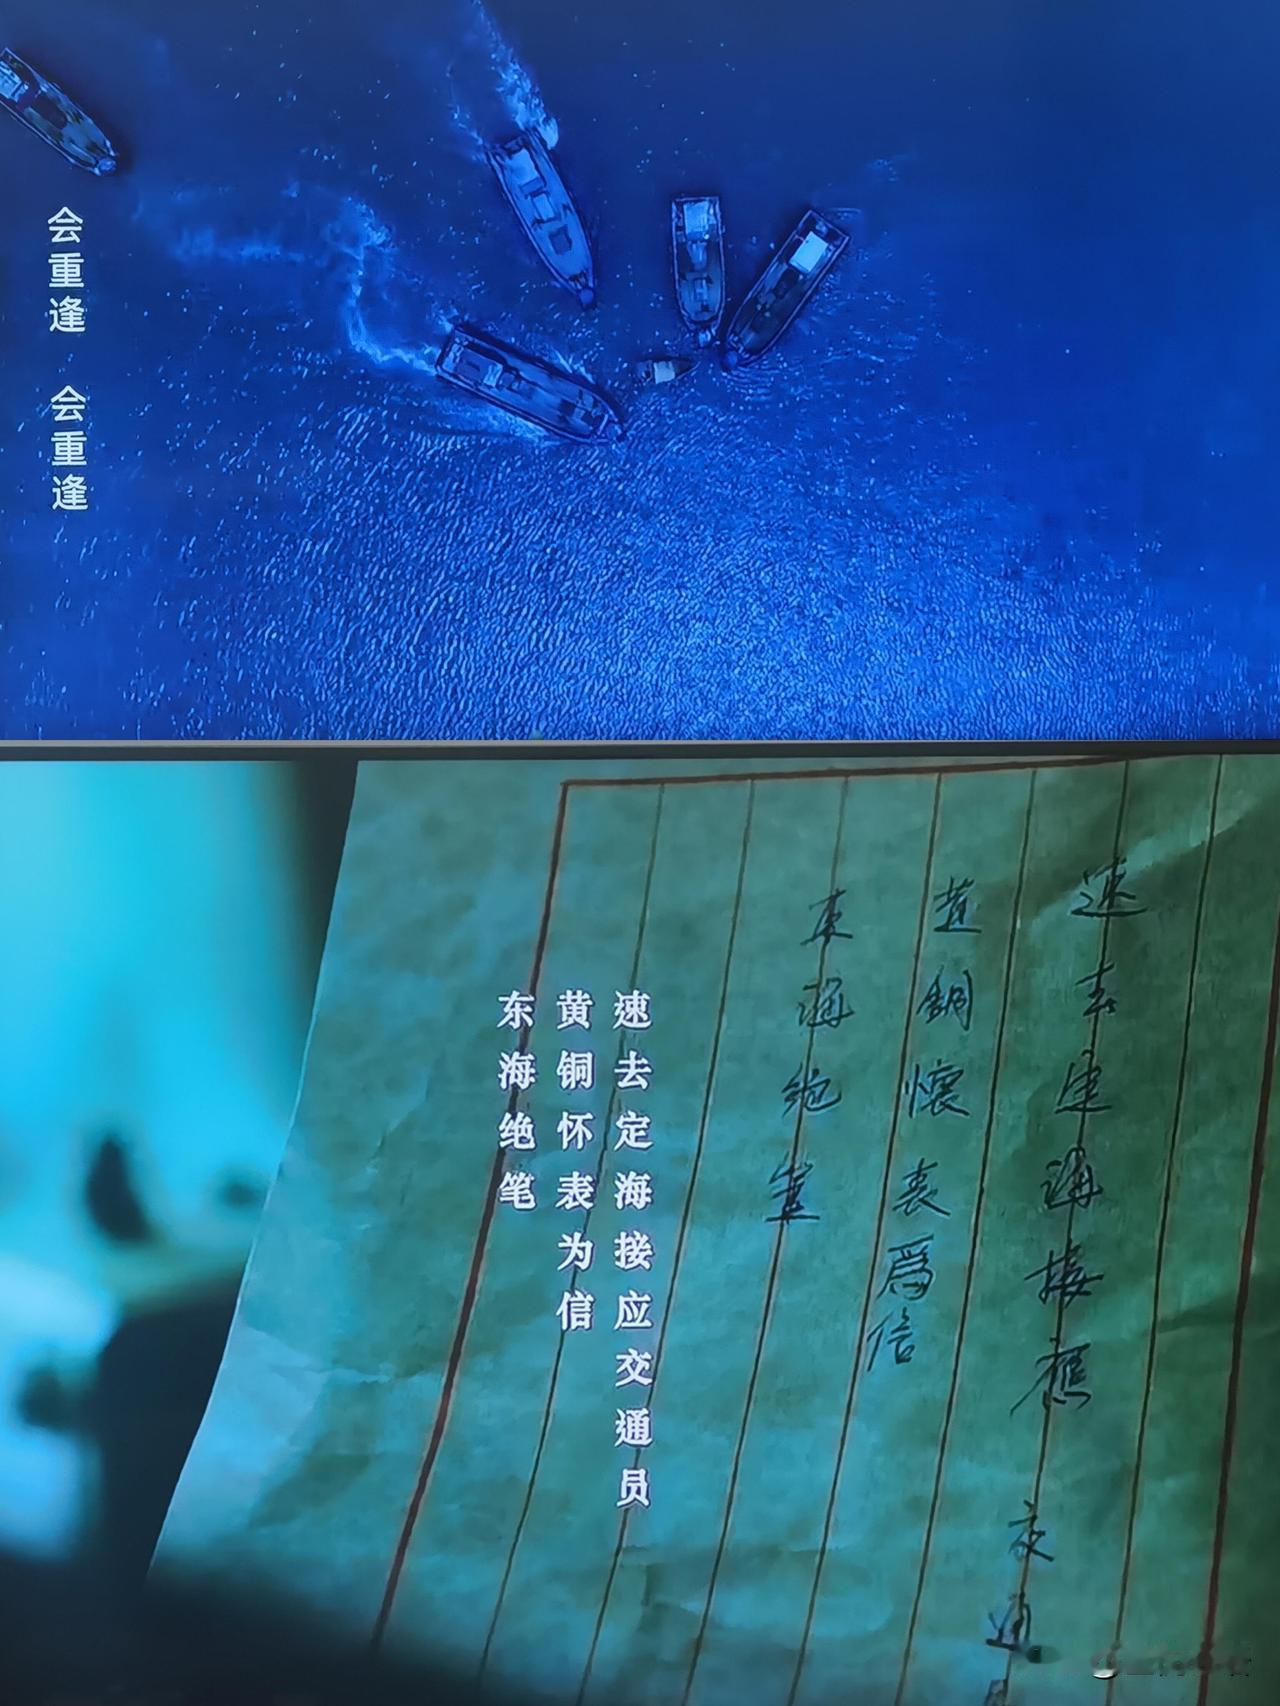 会重逢 会重逢
速去定海接應交通
黃銅懷表爲信
東海絶筆
速去定海接应交通员
黄铜怀表为信
东海绝笔